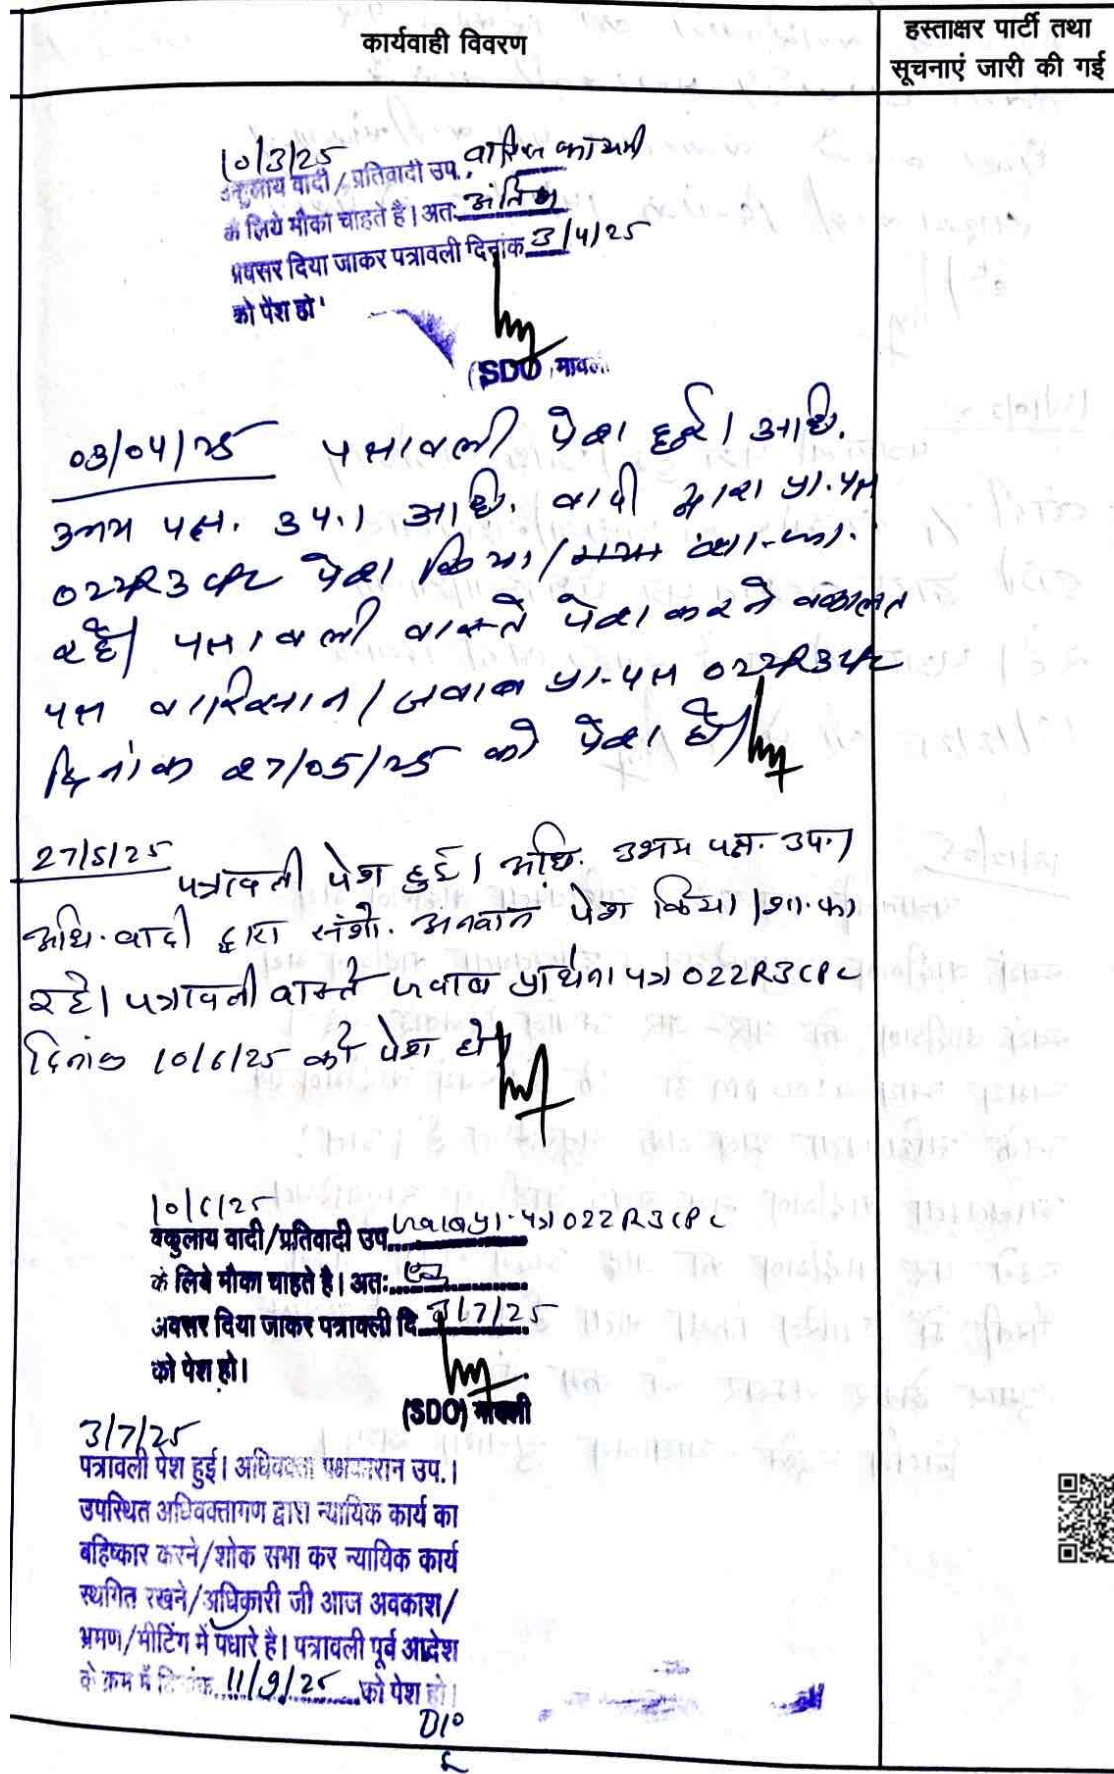 कार्यवाही विवरण
हस्ताक्षर पार्टी तथा
सूचनाएं जारी की गई
10/3/25
वकुलाय वादी/प्रतिवादी उप.
के लिये मौका चाहते है। अतः अंतिम
अवसर दिया जाकर पत्रावली दिनांक 3/4/25
को पेश हो
(SDO) मावली
03/04/25 पत्रावली पेश हुई। अधि.
उभय पक्ष. उप.। अधि. वादी द्वारा प्रा.पत्र
022R3CPC पेश किया। शा.का.
रहे। पत्रावली वास्ते पेश करने वकालत
पत्र वारिसान/जवाब प्रा.पत्र 022R3CPC
दिनांक 27/05/25 को पेश हो।
27/5/25
पत्रावली पेश हुई। अधि. उभय पक्ष. उप.।
अधि. वादी द्वारा संशो. अनवान पेश किया। शा.का
रहे। पत्रावली वास्ते जवाब प्रार्थना पत्र 022R3CPC
दिनांक 10/6/25 को पेश हो।
10/6/25
वकुलाय वादी/प्रतिवादी उप. जवाब प्रा.पत्र 022R3CPC
के लिये मौका चाहते है। अतः
अवसर दिया जाकर पत्रावली दि. 3/7/25
को पेश हो।
(SDO) मावली
3/7/25
पत्रावली पेश हुई। अधिवक्ता पक्षकारान उप.।
उपस्थित अधिवक्तागण द्वारा न्यायिक कार्य का
बहिष्कार करने/शोक सभा कर न्यायिक कार्य
स्थगित रखने/अधिकारी जी आज अवकाश/
भ्रमण/मीटिंग में पधारे है। पत्रावली पूर्व आदेश
के क्रम में दिनांक 11/9/25 को पेश हो।